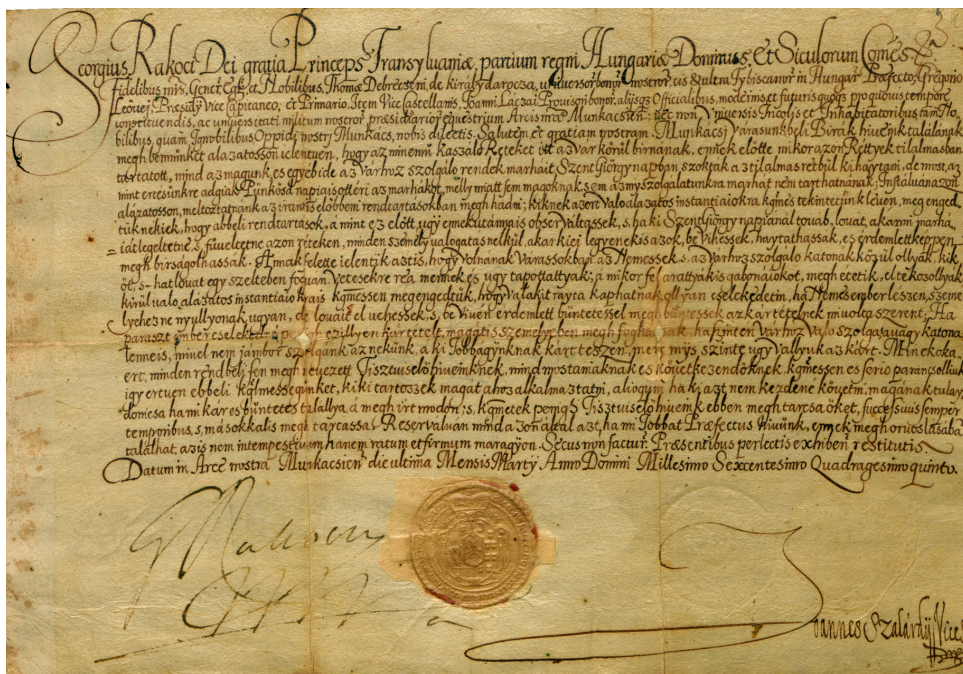 Georgius Rakoci Dei gratia Princeps Transylvaniæ, partium regni Hungariæ Dominus, et Siculorum Comes.
Fidelibus nris, Genero, Egr. et Nobilibus, Thomæ Debreceni, de Királydarocza, universor bonor nostror, cis & ultra Tybiscanor in Hungar Præfecto, Gregorio
Præsidy Vice Capitaneo, et Primario Item Vice Castellanis, Joanni Laczai Provisori bonor, alijsq Officialibus, modernis et futuris quoq pro quovis tempore
constituendis, ac universitati militum nostror præsidiarior Arcis nræ Munkacsien; nec non Universis Incolis et Inhabitatoribus tam No-
bilibus, quam Ignobilibus Oppidi nostri Munkács, nobis dilectis. Salutem et gratiam nostram. Munkácsi Varasunkbeli Birák hiveink találának
megh bennünket alázatosson jelentven, hogy az minemü kaszáló Reteket itt az Var körül birnának, ennek előtte mikor azon Rettyek tilalmasban
tartatott, mind az magunk es egyeb ide az Varhoz szolgáló rendek marháit Szent György napban szokták az tilalmas retbül ki hajtani, de most, az
mint ertesünkre adgiák Pünkösd napiaiglottéri az marhákot, melly miatt sem magoknak, sem az my szolgalatunkra marhat nem tarthatnának; Instalvan azon
alázatosson, meltoztatnánk az iránt is előbbeni rendtartasokban megh hadni; kiknek azert való alazatos instantiaiokra kgmes tekintetünk leven, meg enged
tük nekiek, hogy abbeli rendtartasok, a mint ez előtt, ugy ennekutánna is observáltassek, s ha ki Szent György napianál továb, lovát, akármi marhá
iát legeltetne, s füveltetne azon réteken, minden szemely valogatas nelkül, akar kiei legyenek is azok, be vihessek, haytathassak, es erdemlett keppen
megh birságolhassak. Annak felette ielentik azt is, hogy volnának Várassokban az Nemessek, s. az Varhoz szolgáló katonák közül ollyak, kik
öt, s hat lovat egy szeltében fogván Vetesekre reá mennek es ugy tapottattyak; a mikor fel arattyák is gabonáiokot, meghetetik, elte
kirül való alazatos instantiaiokra is kgmessen megengedtük, hogy Valakit rayta kaphatnak ollyan cselekedetin, ha Nemes ember leszen, szeme
lyehez ne nyullyonak ugyan, de lovait el vehessek, s. be viven erdemlett büntetessel meg bünessek az kartetelnek mivolta szerent. Ha
paraszt ember cselekedné penigh ezillyen kartetelt, magát is szemelyeben megh foghassak, ha szinten varhoz való szolga avagy katona
lenne is, mivel nem jámbor szolgánk az nekünk, a ki Jobbagyinknak kárt teszen, mert mys szinte ugy Vallyuk az kárt. Minekoka-
ert, minden rendbeli fen megh nevezett Tisztviselő hiveinknek, mind mostaniaknak es következendöknek, kgmessen es serio parancsolliuk
igy ertven ebbeli kgmessegünket, ki ki tartozzek magát ahoz alkalmaztatni, alioquin ha ki azt nem kezdene követni, magának tulay
donicsa ha mi kár es büntetes talallya a megh irt modon; s, kgmetek penigh Tisztviselő hiveim ebben megh tarcsa öket, successivis semper
temporibus, s másokkal is megh tartassa. Reservalván mind azonáltal azt, ha mi Jobbat Præfectus hivünk, ennek megh orvoslásában
találhat, az is nem intempestivum hanem ratum et firmum maragyon. Secus non factur. Præsentibus perlectis exhiben restitutis.
Datum in Arce nostra Munkacsien, die ultima Mensis Marty Anno Domini Millesimo Sexcentesimo Quadragesimo quinto.
G Rakoci
Joannes Szalárdij Vice